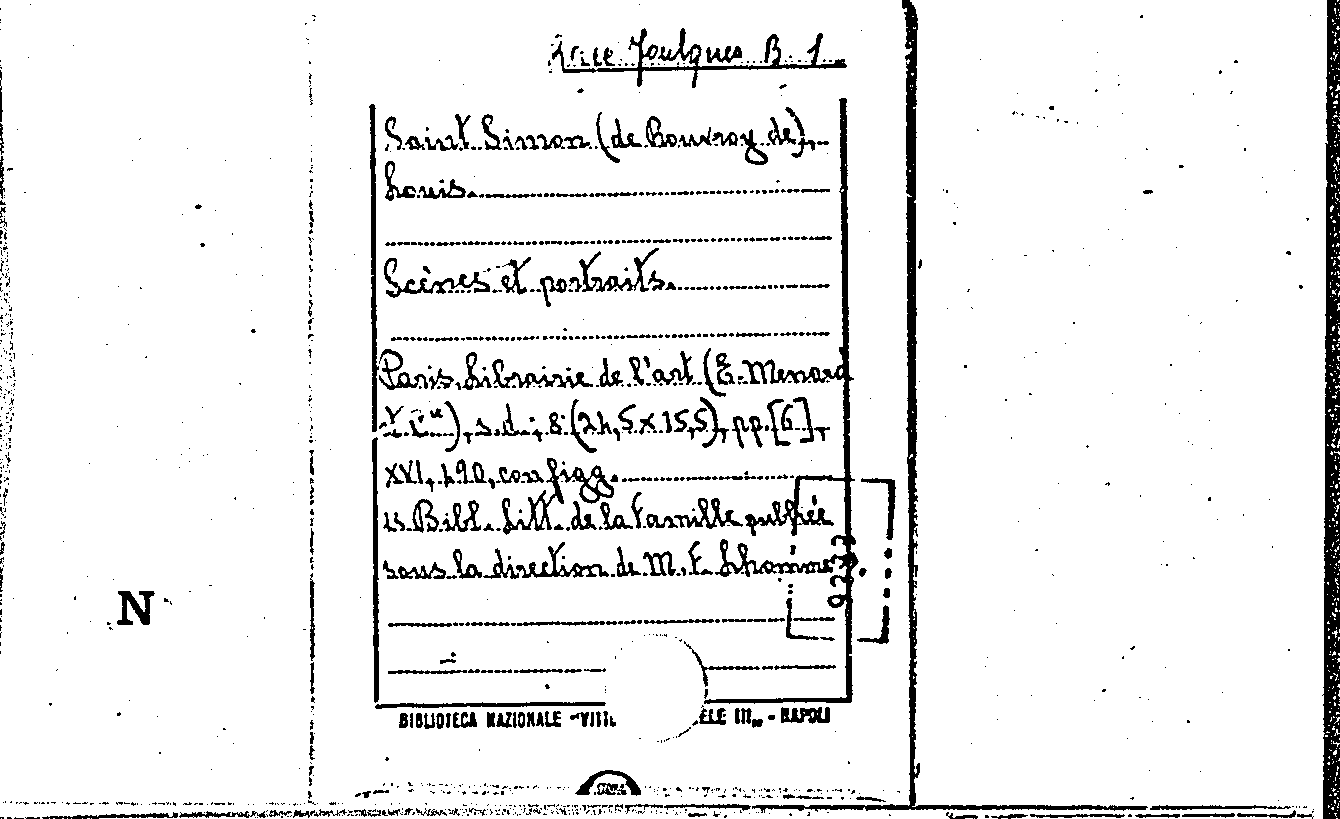 Race Foulques B. 1
Saint Simon (de Rouvroy de),
Louis.
Scènes et portraits.
Paris, Librairie de l'art (E. Menard
et C.ie), s.d.; 8° (24,5 x 15,5), pp. [6],
XVI, 490, con figg.
Bibl. Litt. de la Famille publiée
sous la direction de M. F. Lhomme
N
BIBLIOTECA NAZIONALE - NAPOLI